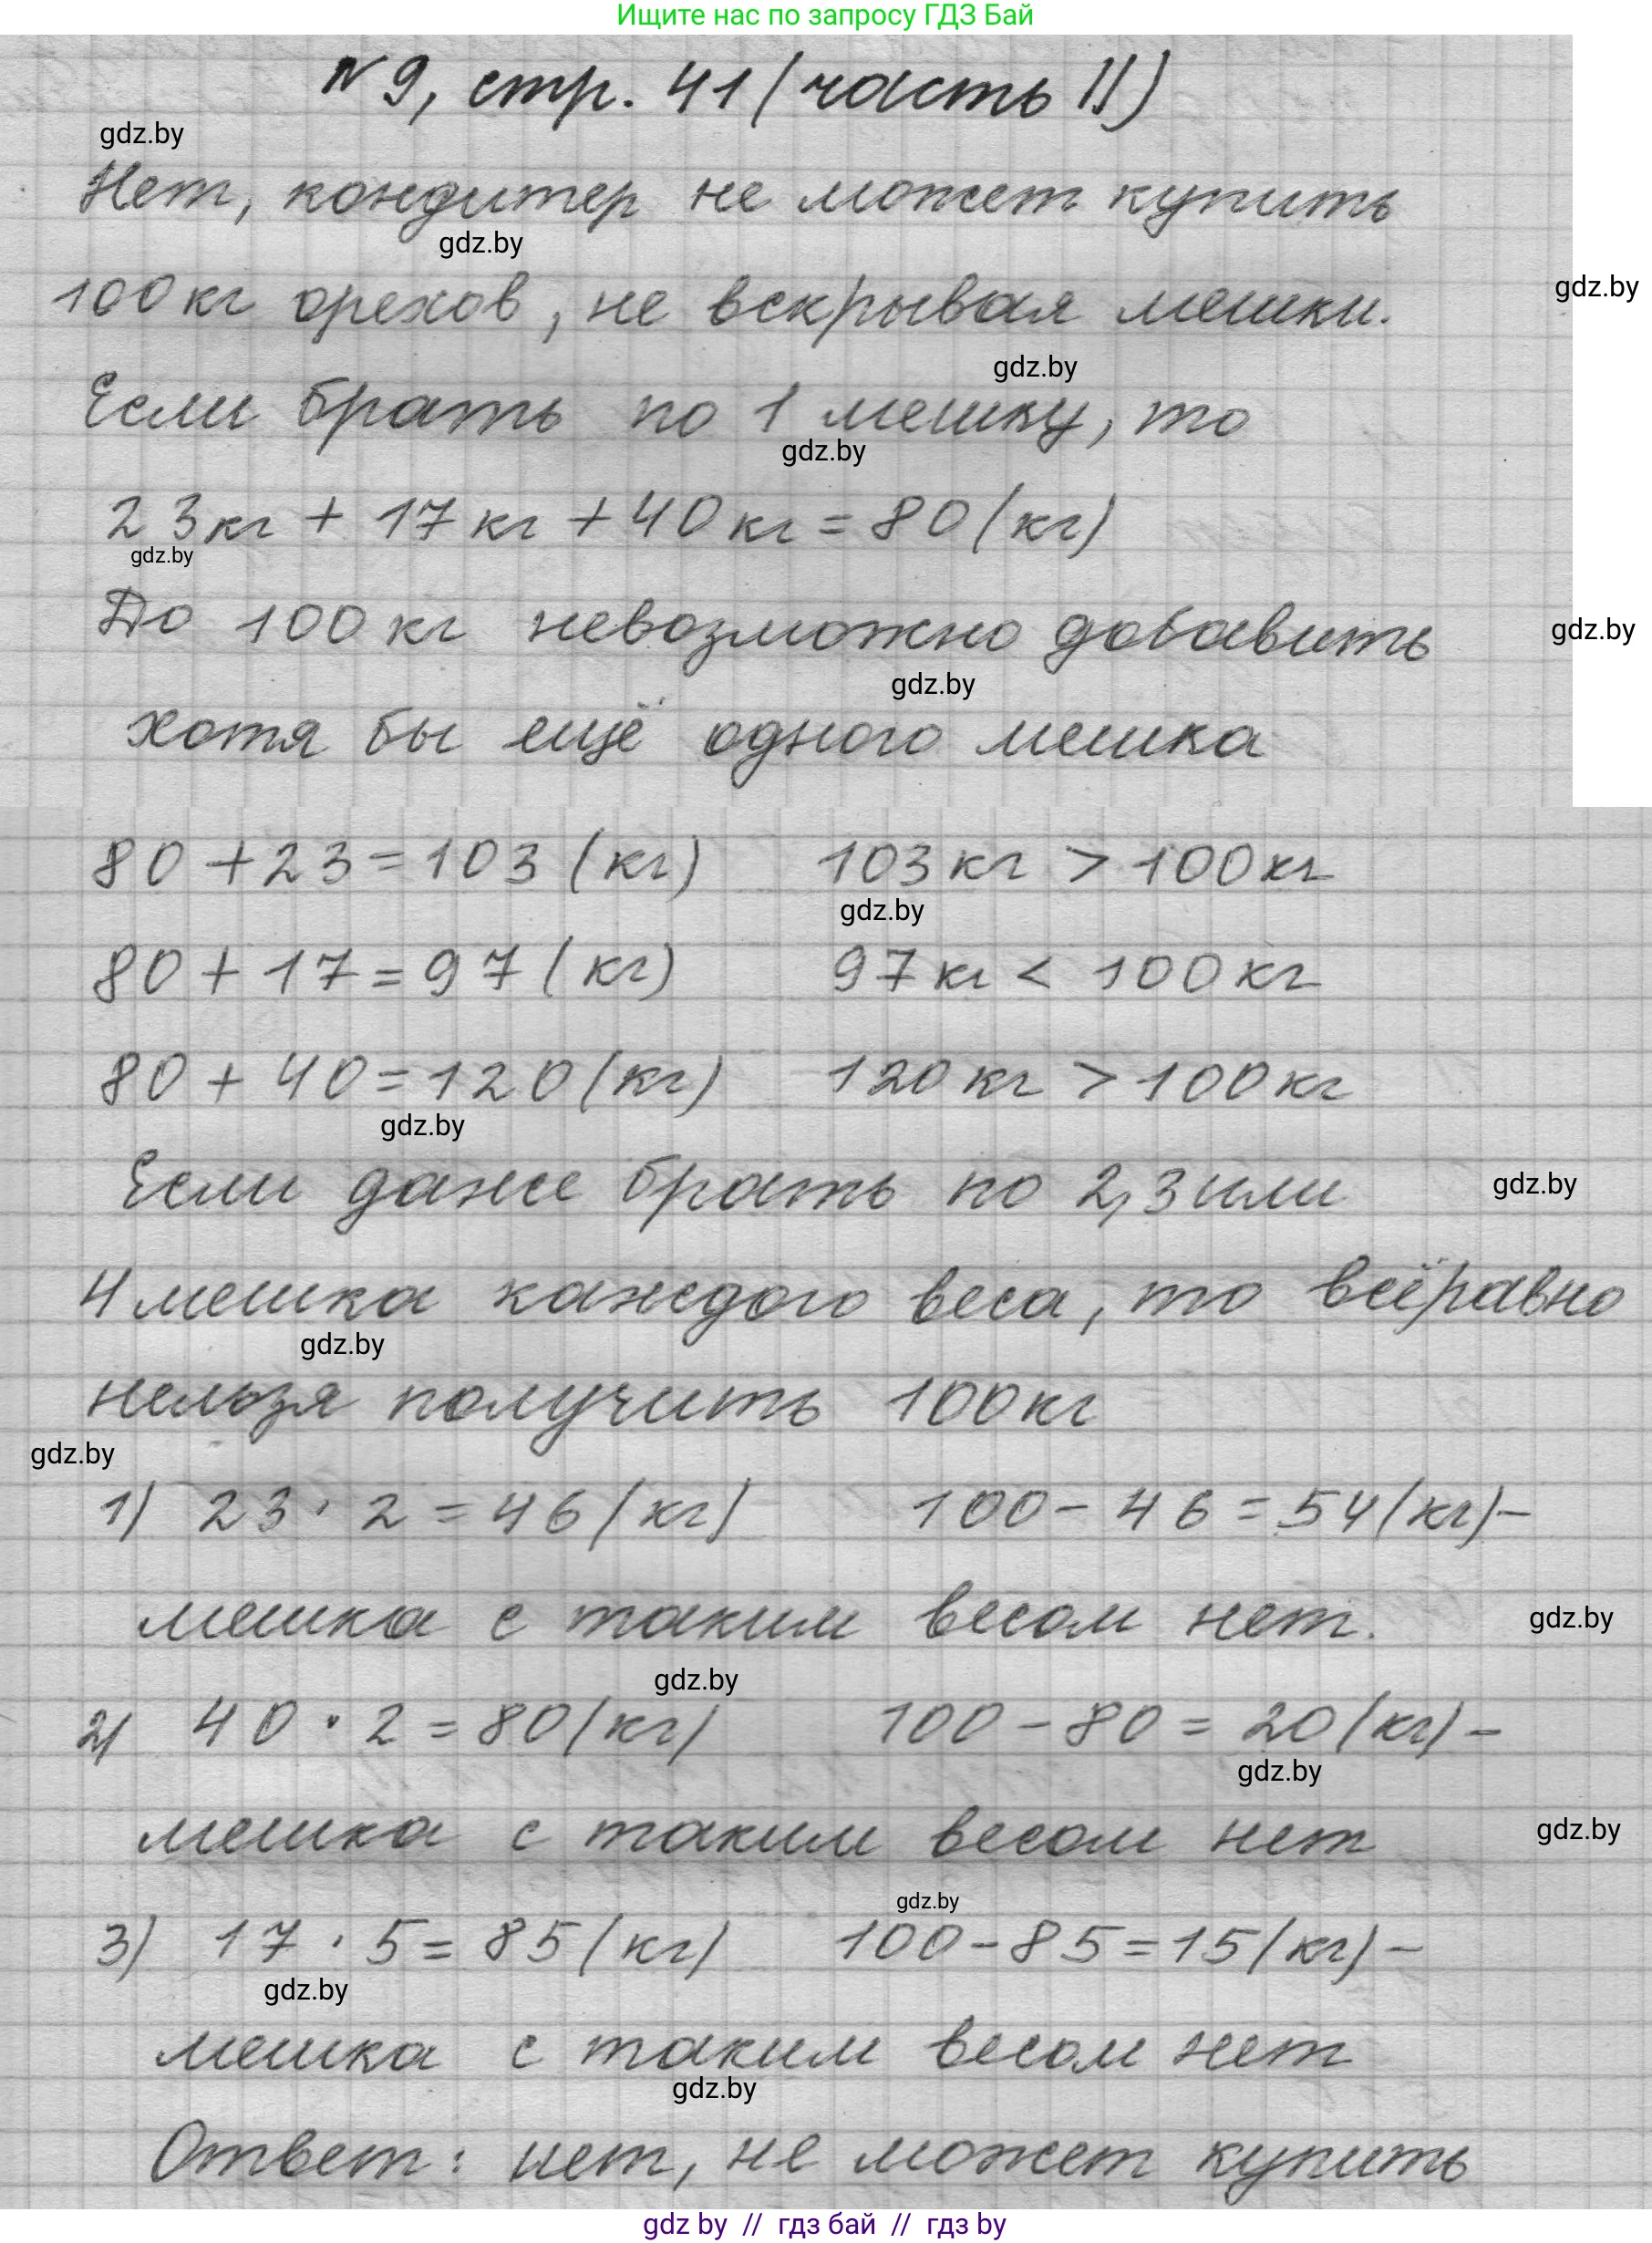 Ищите нас по запросу ГДЗ Бай
№9, стр. 41 (часть II)
gdz.by
Нет, кондитер не может купить
gdz.by
100 кг орехов, не вскрывая мешки.
gdz.by
gdz.by
Если брать по 1 мешку, то
gdz.by
23 кг + 17 кг + 40 кг = 80 (кг)
gdz.by
До 100 кг невозможно добавить
gdz.by
gdz.by
хотя бы ещё одного мешка
80 + 23 = 103 (кг) 103 кг > 100 кг
gdz.by
80 + 17 = 97 (кг) 97 кг < 100 кг
80 + 40 = 120 (кг) 120 кг > 100 кг
gdz.by
Если даже брать по 2, 3 или
gdz.by
4 мешка каждого веса, то всё равно
gdz.by
нельзя получить 100 кг
gdz.by
1) 23 · 2 = 46 (кг) 100 - 46 = 54 (кг) -
мешка с таким весом нет.
gdz.by
gdz.by
2) 40 · 2 = 80 (кг) 100 - 80 = 20 (кг) -
gdz.by
мешка с таким весом нет
gdz.by
gdz.by
3) 17 · 5 = 85 (кг) 100 - 85 = 15 (кг) -
gdz.by
мешка с таким весом нет
gdz.by
Ответ: нет, не может купить
gdz by // гдз бай // гдз by